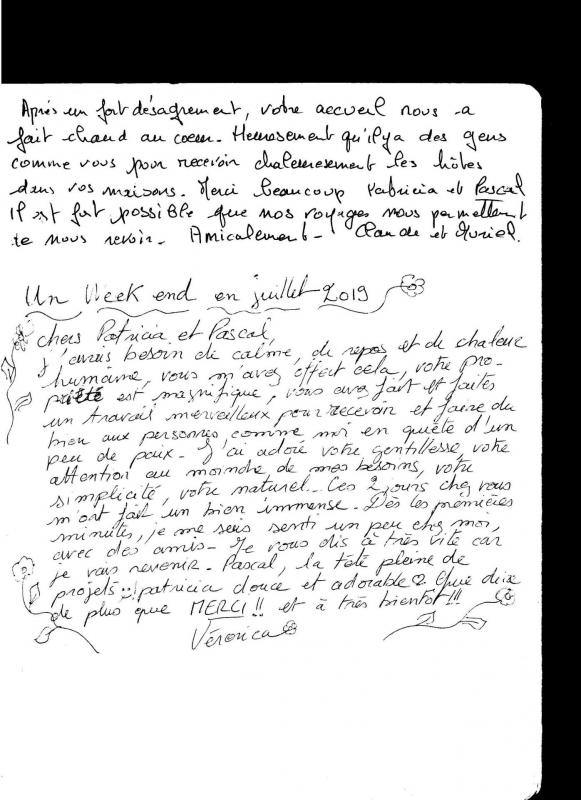 Après un fort désagrement, votre accueil nous a
fait chaud au coeur. Heureusement qu'il y a des gens
comme vous pour recevoir chaleuresement les hôtes
dans vos maisons. Merci beaucoup Patricia et Pascal
Il est fort possible que nos voyages nous permettent
de nous revoir. Amicalement - Claude et Muriel.
Un Week end en juillet 2019
chers Patricia et Pascal,
J'avais besoin de calme, de repos et de chaleur
humaine, vous m'avez offert cela, votre pro-
priété est magnifique, vous avez fait et faites
un travail merveilleux pour recevoir et faire du
bien aux personnes comme moi en quiète d'un
peu de paix - J'ai adoré votre gentillesse, votre
attention au moindre de mes besoins, votre
simplicité, votre naturel - Ces 2 jours chez vous
m'ont fait un bien immense. Dès les premières
minutes, je me suis senti un peu chez moi,
avec des amis - Je vous dis à très vite car
je vais revenir - Pascal, la tête pleine de
projets !! patricia douce et adorable ♡ Que dire
de plus que MERCI !! et à très bientôt !!!
Véronica